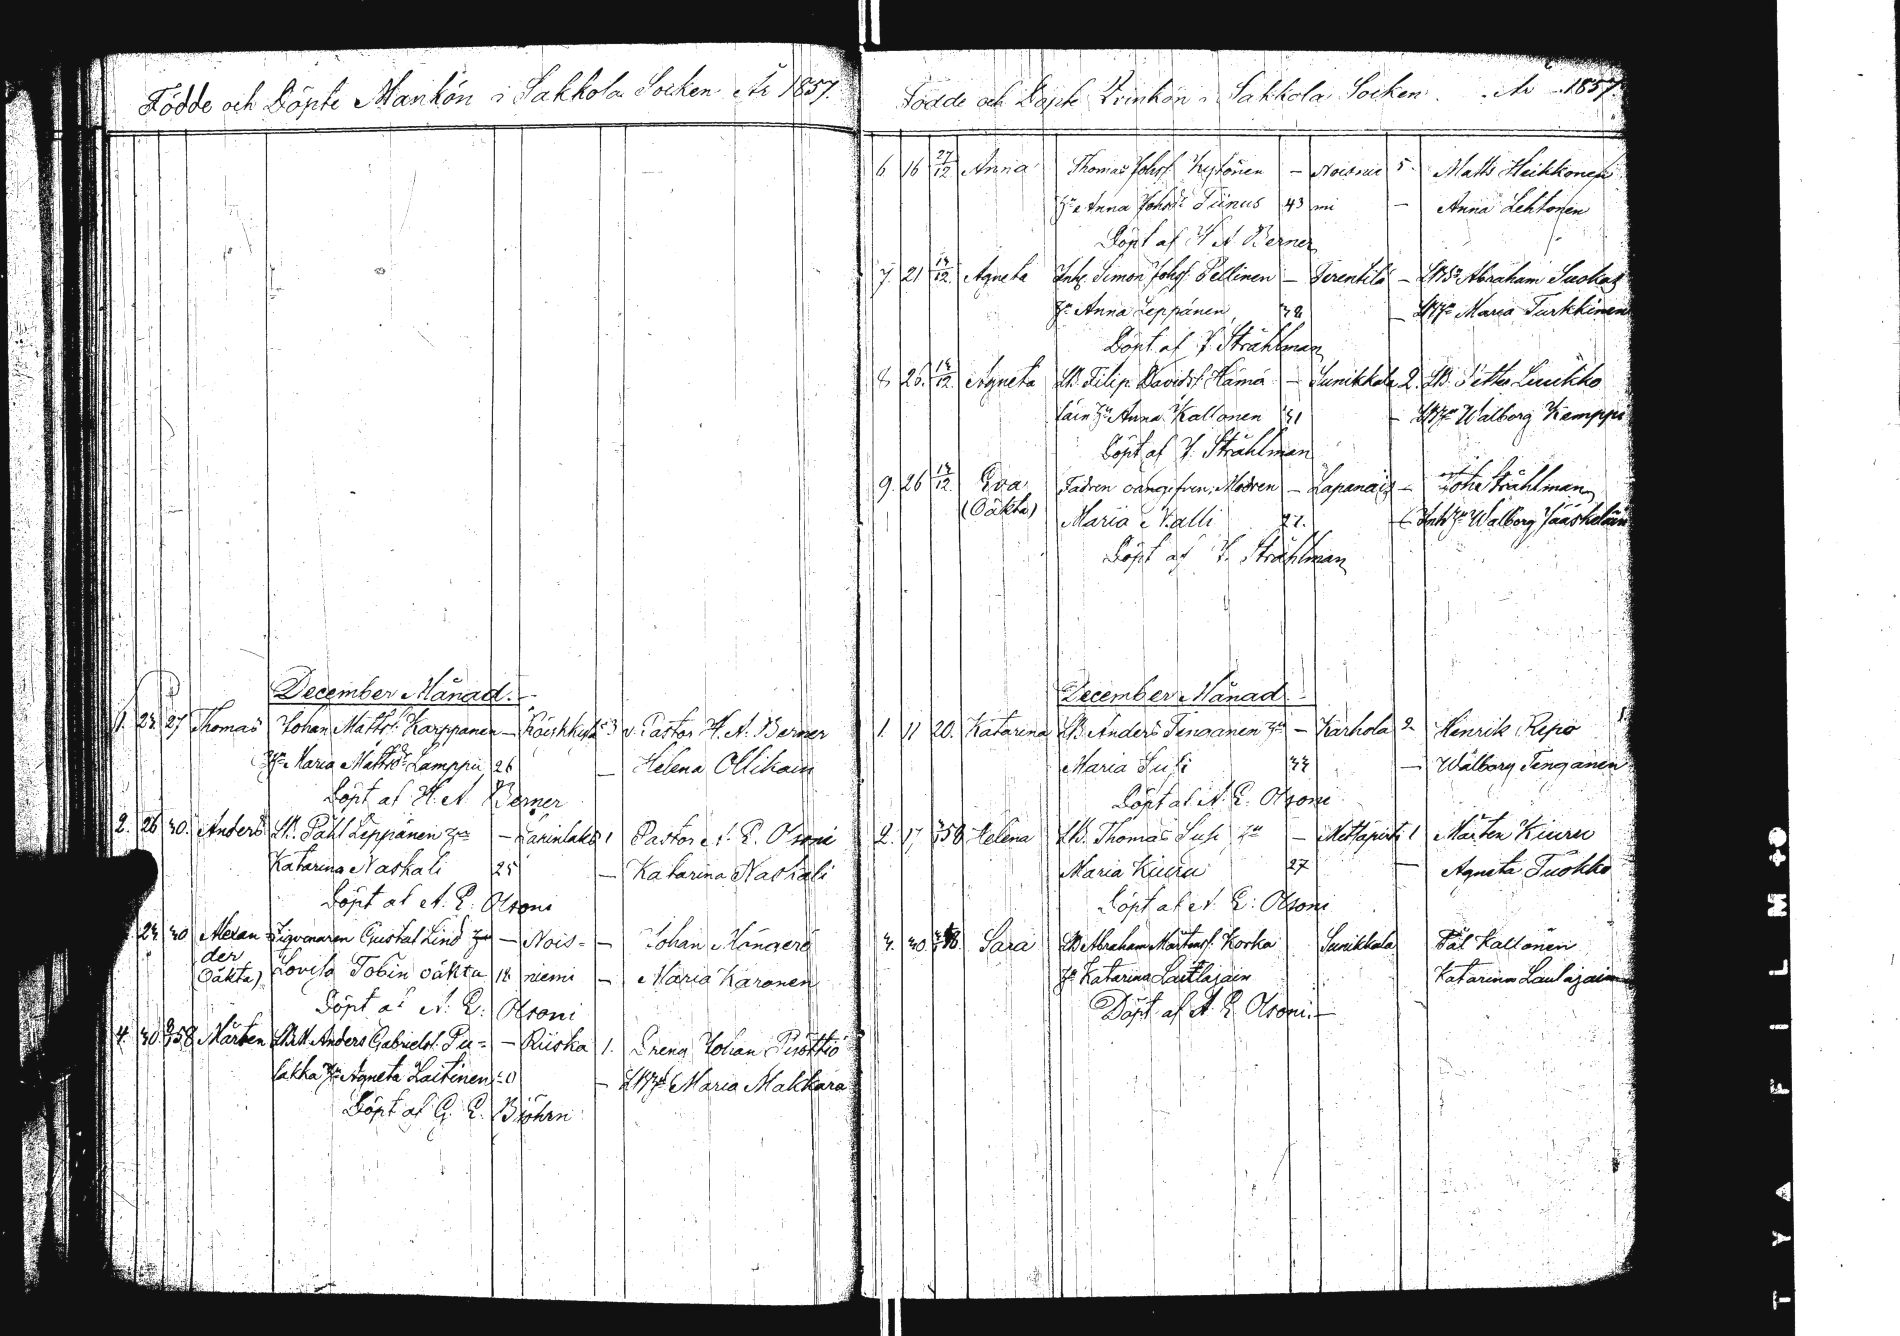 Födde och Döpte Mankön i Sakkola Socken År 1857.
December Månad.
1. 23. 27 Thomas Johan Matts. Karppanen – Röiskkylä 3 v. Pastor H. A. Berner
Hu Maria Mattsd. Lamppu 26 – Helena Ollikain
Döpt af H. A. Berner
2. 26 30. Anders LB. Påhl Leppänen Hu – 1 Pastor A. E. Olsoni
Katarina Naskali 25 – Katarina Naskali
Döpt af A. E. Olsoni
23 30 Alexan- Gustaf Lind – Nois- – Johan
der Lovisa Tobin oäkta 18 niemi – Maria Karonen
(Oäkta)
Döpt af A. E. Olsoni
4. 30. 58 Mårten Anders Gabrielsf. Pu- – Riiska 1. Dreng Johan
lakka Hu Agneta Laitinen – Maria Makkara
Döpt af G. E. Björhn
Födde och Döpte Qvinkön i Sakkola Socken. År 1857.
6 16 27/12 Anna Thomas Johsf. Kytönen – Noisnie 5. Matts Heikkonen
Hu Anna Johsd. Tiinus 43 mi – Anna Lehtonen
Döpt af H A Berner
7. 21 13/12 Agneta Inh. Simon Johsf. Pellinen – Terentilä – Abraham Suokas
Hu Anna Leppänen 38 – Maria Turkkinen
Döpt af J. Stråhlman
8. 25. 13/12 Agneta LB. Filip Davidsf. Hämä – Sunikkala 2. LB. Petter Luukko
läin Hu Anna Kallonen 31 – Walborg Kemppi
Döpt af J. Stråhlman
9. 26 13/12 Eva Fadren oangifven, Modren – Lapanais – Stråhlman
(Oäkta) Maria Nalli 27. Walborg Jääskeläin
Döpt af J. Stråhlman
December Månad
1. 11 20. Katarina LB Anders Tenganen Hu – Karhola 2 Henrik Repo
Maria Susi 33 – Walborg Tenganen
Döpt af A. E. Olsoni
2. 17, 58 Helena LB. Thomas Susi Hu – Mettäpirti 1 Mårten Kiuru
Maria Kiuru 27 – Agneta Tuokko
Döpt af A. E. Olsoni
3. 30 58 Sara LB Abraham Mårtensf. Koska Sunikkala Pål Kallonen
Hu Katarina Lautlajain Katarina Laulajainen
Döpt af A. E. Olsoni. –
TYAFILM